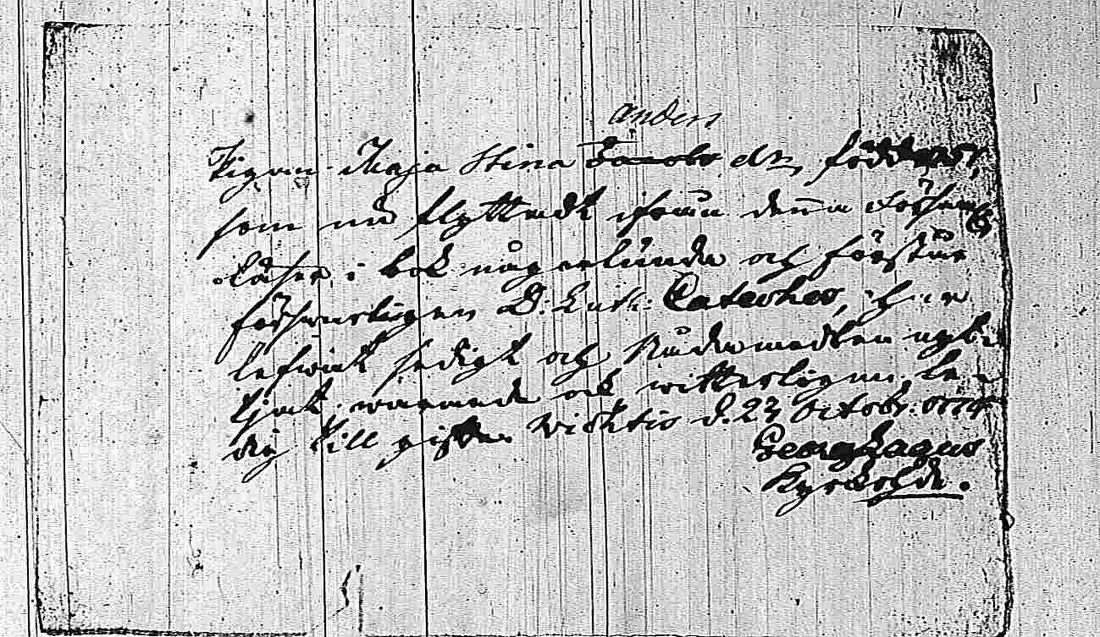 anders
Pigan Maja Stina Jacobs dtr, född
som nu flyttadt ifrån denna Församl.
läser i bok någorlunda och förstår
försvarligen D: Luth: Cateches, har
lefwat sedigt och Nådemedlen
tjat, warande ock witterligen le-
dig till gifte. Wichtis d. 23 Octobr: 1774
Georg Lagus
Kyrkohde.